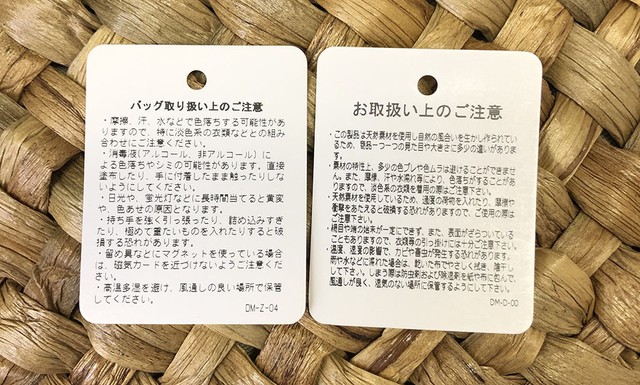 バッグ取り扱い上のご注意
・摩擦、汗、水などで色落ちする可能性があ
りますので、特に淡色系の衣類などとの組み
合わせにご注意ください。
・消毒液(アルコール、非アルコール)に
よる色落ちやシミの可能性があります。直接
塗布したり、手に付着したまま触ったりしな
いようにしてください。
・日光や、蛍光灯などに長時間当てると黄変
や、色あせの原因となります。
・持ち手を強く引っ張ったり、詰め込みすぎ
たり、極めて重たいものを入れたりすると破
損する恐れがあります。
・留め具などにマグネットを使っている場合
は、磁気カードを近づけないようご注意くだ
さい。
・高温多湿を避け、風通しの良い場所で保管
してください。
DM-Z-04
お取扱い上のご注意
・この製品は天然素材を使用し自然の風合いを生かし作られてい
るため、商品一つ一つの見た目や大きさに多少の違いがありま
す。
・素材の特性上、多少の色ブレや色ムラは避けることができませ
ん。また、摩擦、汗や水濡れ等により、色落ちがすることがあ
りますので、淡色系の衣類を着用の際はご注意下さい。
・天然素材を使用しているため、過度の荷物を入れたり、摩擦や
衝撃をあたえると破損する恐れがありますので、ご使用の際は
ご注意下さい。
・網目や端の始末が一定にできず、また、表面がざらついている
こともありますので、衣類等の引っ掛けには十分ご注意下さい。
・温度、湿度の影響で、カビや害虫が発生する恐れがあります。
雨や水などに濡れた場合は、乾いた布でやさしく拭き、陰干し
して下さい。しまう際は防虫剤および除湿剤を紙や布に包んで、
風通しが良く、湿気のない場所に保管するようにして下さい。
DM-D-00